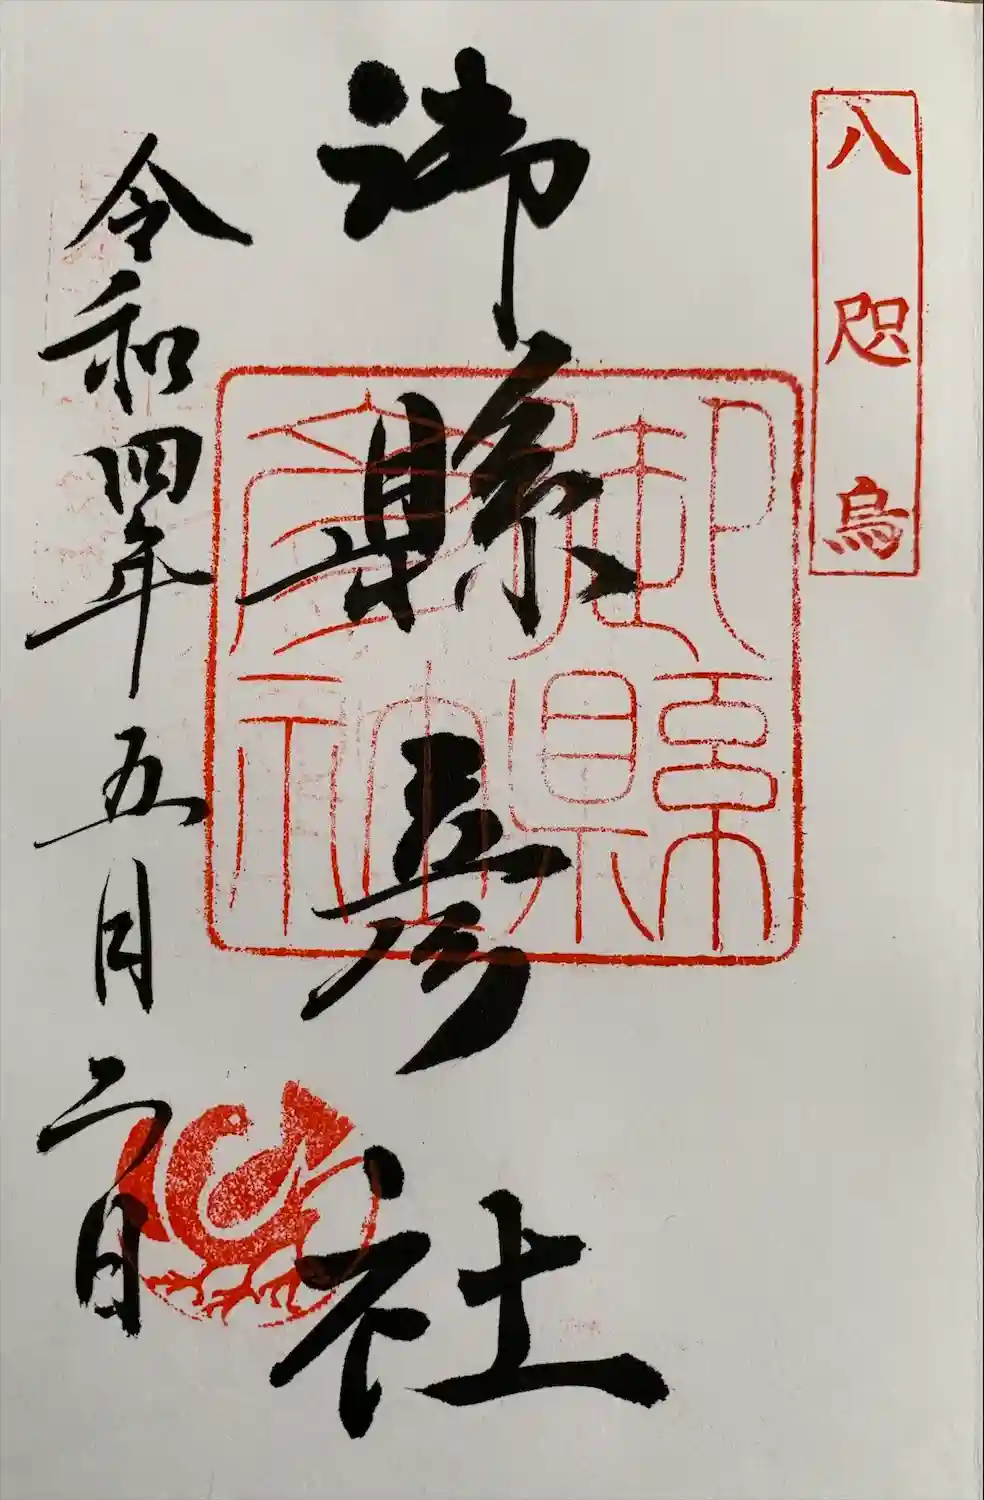 八咫烏
御縣彦社
御縣彦社
令和四年五月二日